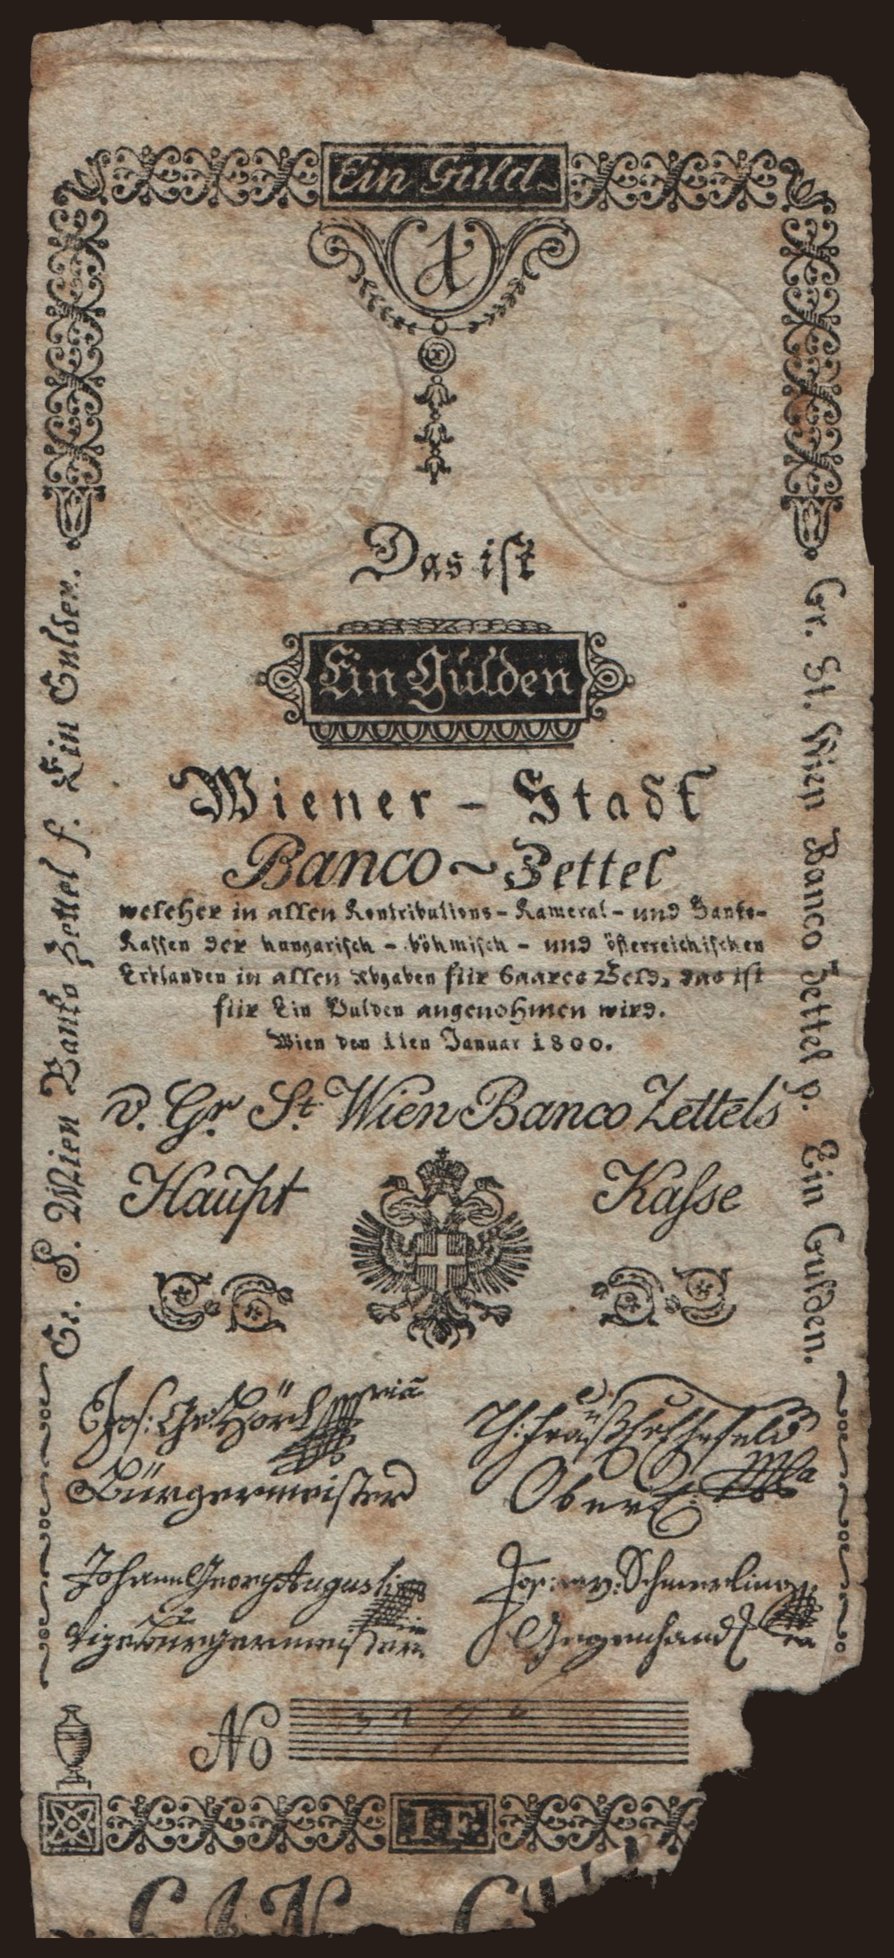 Ein Guld~
1
Das ist
Ein Gulden
Wiener - Stadt
Banco ~ Zettel
welcher in allen Kontributions - Kameral - und Banko-
Kassen der hungarisch - böhmisch - und österreichischen
Erblanden in allen Abgaben für baares Geld, das ist
für Ein Gulden angenohmen wird.
Wien den 1ten Januar 1800.
v. Gr. St. Wien Banco Zettels
Haupt Kasse
Gr. S. Wien Banko Zettel f. Ein Gulden.
Gr. St. Wien Banco Zettel p. Ein Gulden.
Jos: Ge: Hörl
Bürgermeister
Johann Georg Augusti
Vizebürgermeister
v: Schmerling
Gegenhand
No
1 F